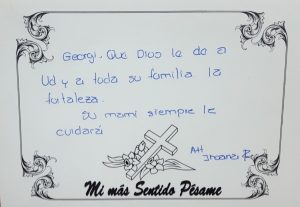 Georgi, Que Dios le de a
Ud y a toda su familia la
fortaleza.
Su mami siempre le
cuidará
Att
Mi más Sentido Pésame